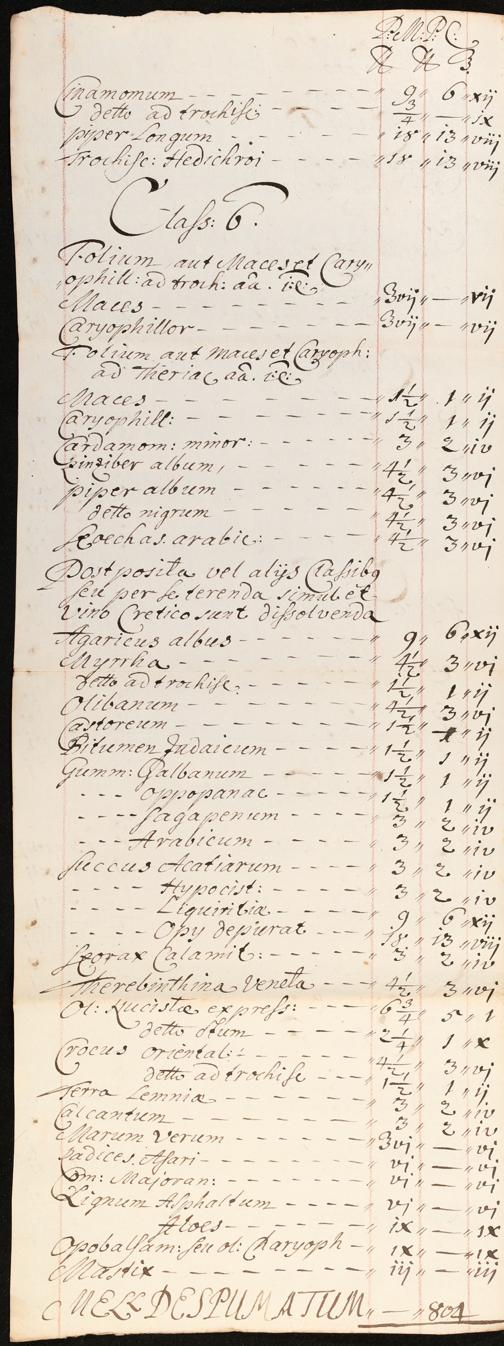 P: M: P: C:
℔ ℔ ℥
Cinamomum - - - - - „ 9 „ 6 „ xij
detto ad trochisc: - - - „ 3/4 „ „ ix
piper Longum - - - - „ 18 „ 13 „ viij
Trochisc: Hedichroi - - - „ 18 „ 13 „ viij
Class: 6.
Folium aut Maces et Cary„
„ophill: ad troch: aa. i:e:
Maces - - - - - „ ʒvij „ — „ vij
Caryophillor - - - - - „ ʒvij „ — „ vij
Folium aut maces et Caryoph:
ad Theriac aa. i:e:
Maces - - - - - „ 1 1/2 „ 1 „ ij
Caryophill: - - - - „ 1 1/2 „ 1 „ ij
Cardamom: minor: - - - „ 3 „ 2 „ iv
Zinziber album, - - - „ 4 1/2 „ 3 „ vj
piper album - - - „ 4 1/2 „ 3 „ vj
detto nigrum - - - „ 4 1/2 „ 3 „ vj
Stoechas. arabic: - - - „ 4 1/2 „ 3 „ vj
Post posita vel alijs Classibq
seu per se terenda simul et
Vino Cretico sunt dissolvenda
Agaricus albus - - - - „ 9 „ 6 „ xij
Myrrha - - - - „ 4 1/2 „ 3 „ vj
detto ad trochisc: - - - „ 1 1/2 „ 1 „ ij
Olibanum - - - - „ 4 1/2 „ 3 „ vj
Castoreum - - - - „ 1 1/2 „ 1 „ ij
Bitumen Judaicum - - - „ 1 1/2 „ 1 „ ij
Gumm: Galbanum - - - „ 1 1/2 „ 1 „ ij
- - - Oppopanac - - - „ 1 1/2 „ 1 „ ij
- - - - Sagapenum - - - „ 3 „ 2 „ iv
- - - Arabicum - - - „ 3 „ 2 „ iv
Succus Acatiarum - - - „ 3 „ 2 „ iv
- - - - Hypocist: - - - „ 3 „ 2 „ iv
- - - - Liquiritiæ - - - „ 9 „ 6 „ xij
- - - - Opy depurat - - - „ 18 „ 13 „ viij
Storax Calamit: - - - „ 3 „ 2 „ iv
Therebinthina Veneta - - - „ 4 1/2 „ 3 „ vj
Ol: Nucistæ express: - - - „ 6 3/4 „ 5 „ 1
detto - - - „ 2 1/4 „ 1 „ x
Crocus oriental: - - - „ 4 1/2 „ 3 „ vj
detto ad trochisc - - - „ 1 1/2 „ 1 „ ij
Terra Lemnia - - - - „ 3 „ 2 „ iv
Calcantum - - - - „ 3 „ 2 „ iv
Marum Verum - - - - „ ʒvj „ — „ vj
radices. Asari - - - - „ vj „ — „ vj
Com: Majoran: - - - - „ vj „ — „ vj
Lignum Asphaltum - - - „ vj „ — „ vj
Aloes - - - - „ ix „ — „ ix
Opobalsam: seu ol: Charyoph - „ ix „ — „ ix
Mastix - - - - „ iij „ — „ iij
MELL DESPUMATUM „ — „ 804